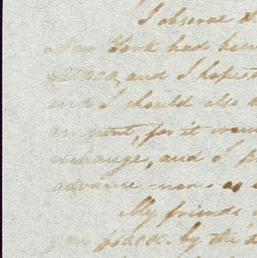 I observe th
New York had been
$2000, and I hope t
and I should also b
amount, for it wou
exchange, and I p
advance
My friends
you $2000. by the